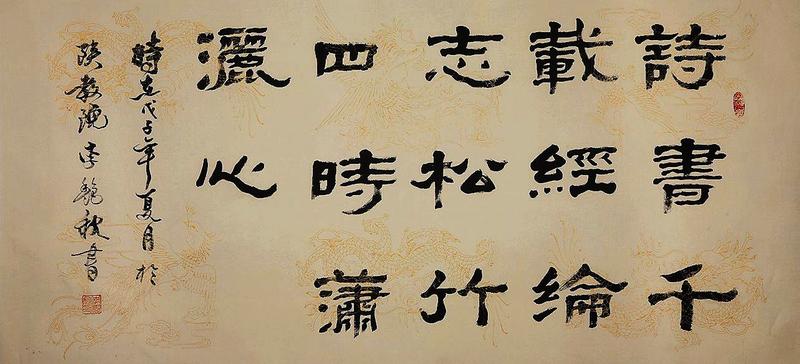 詩書千
載經綸
志松竹
四時瀟
灑心
時在戊子年夏月於
陝教院李艷秋書